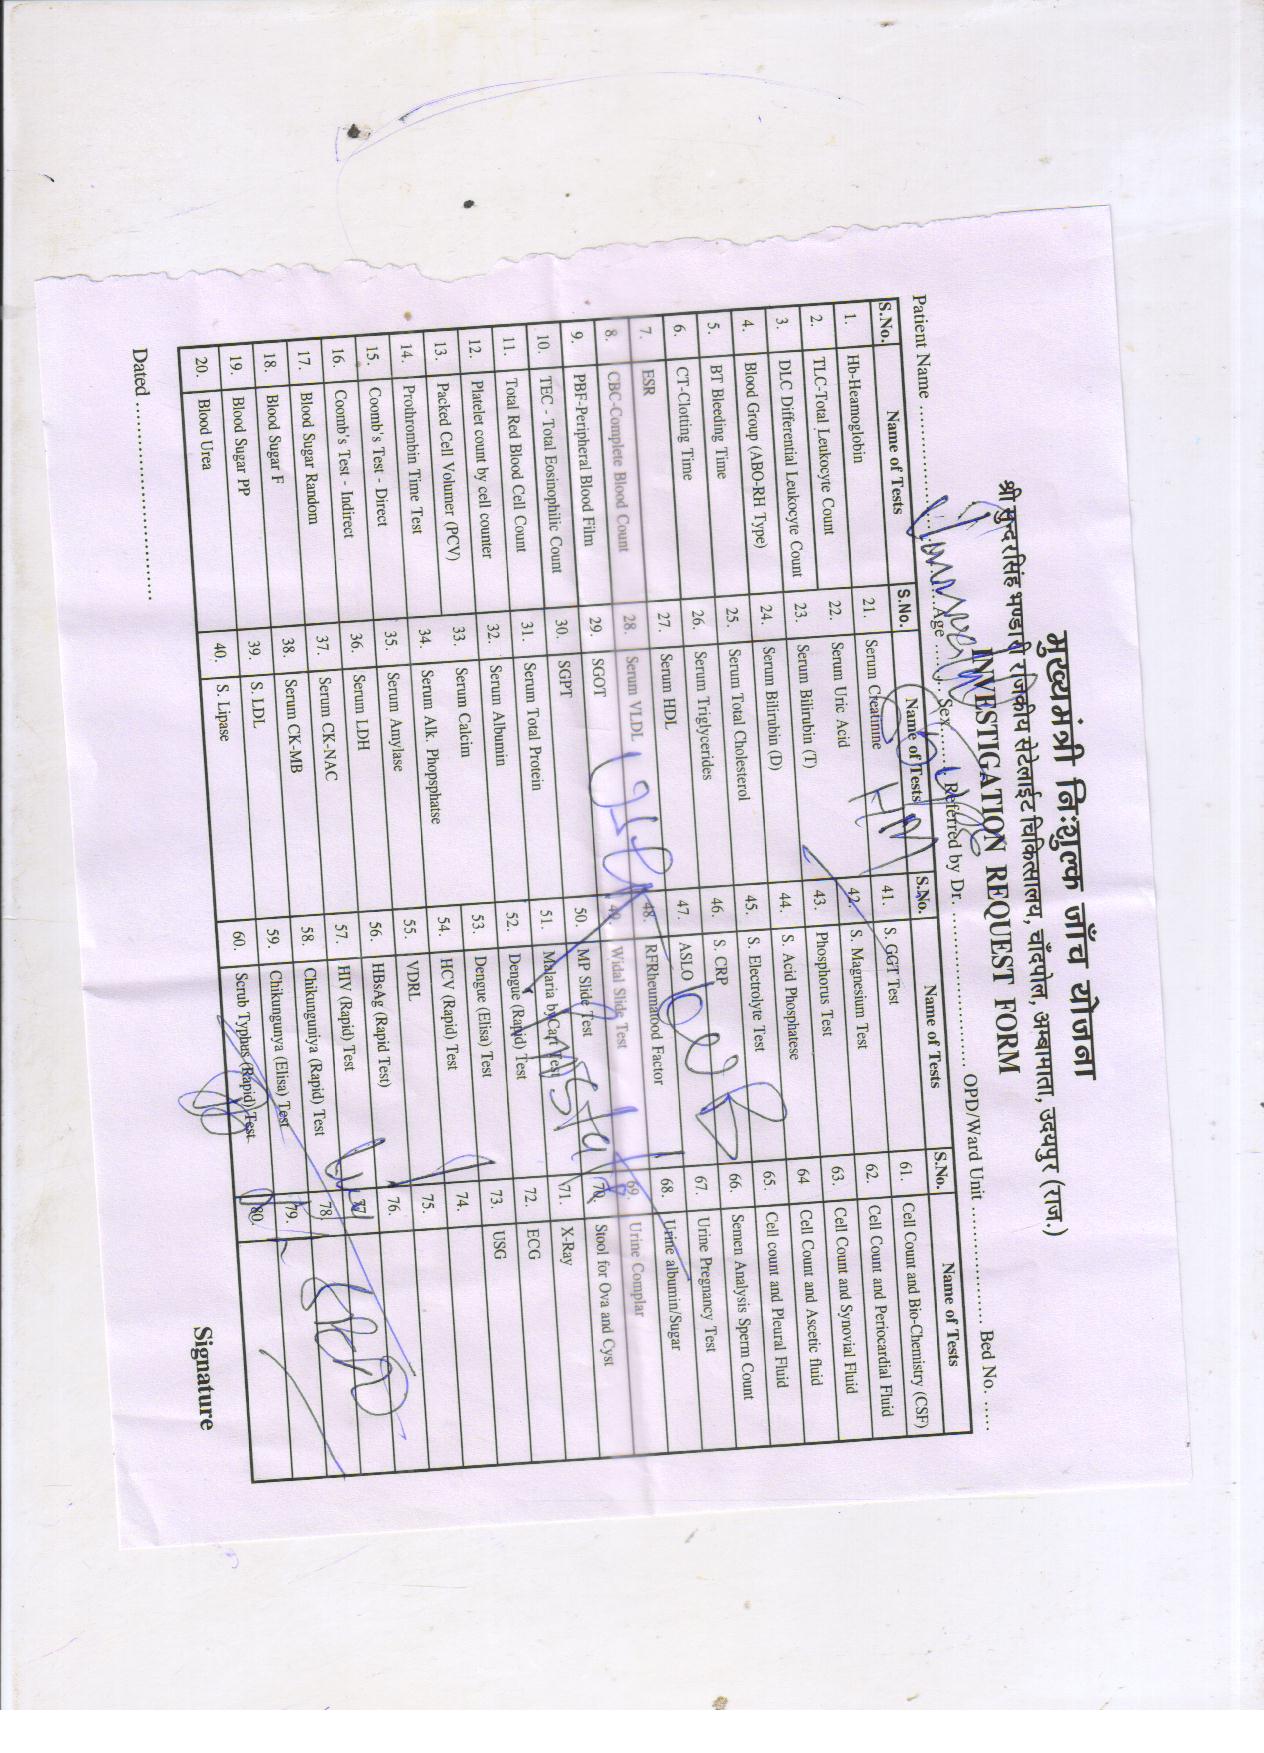 मुख्यमंत्री निःशुल्क जाँच योजना
श्री सुन्दरसिंह भण्डारी राजकीय सेटेलाईट चिकित्सालय, चाँदपोल, अम्बामाता, उदयपुर (राज.)
INVESTIGATION REQUEST FORM
Patient Name .................... Age ........ Sex........ Referred by Dr. .................... OPD/Ward Unit .................... Bed No. .....
S.No. Name of Tests S.No. Name of Tests S.No. Name of Tests S.No. Name of Tests
1. Hb-Heamoglobin 21. Serum Creatinine 41. S. GGT Test 61. Cell Count and Bio-Chemistry (CSF)
2. TLC-Total Leukocyte Count 22. Serum Uric Acid 42. S. Magnesium Test 62. Cell Count and Periocardial Fluid
3. DLC Differential Leukocyte Count 23. Serum Bilirubin (T) 43. Phosphorus Test 63. Cell Count and Synovial Fluid
4. Blood Group (ABO-RH Type) 24. Serum Bilirubin (D) 44. S. Acid Phosphatese 64 Cell Count and Ascetic fluid
5. BT Bleeding Time 25. Serum Total Cholesterol 45. S. Electrolyte Test 65. Cell count and Pleural Fluid
6. CT-Clotting Time 26. Serum Triglycerides 46. S. CRP 66. Semen Analysis Sperm Count
7. ESR 27. Serum HDL 47. ASLO 67. Urine Pregnancy Test
8. CBC-Complete Blood Count 28. Serum VLDL 48. RFRheumatood Factor 68. Urine albumin/Sugar
9. PBF-Peripheral Blood Film 29. SGOT 49. Widal Slide Test 69. Urine Complar
10. TEC - Total Eosinophilic Count 30. SGPT 50. MP Slide Test 70. Stool for Ova and Cyst
11. Total Red Blood Cell Count 31. Serum Total Protein 51. Malaria by Cart Test 71. X-Ray
12. Platelet count by cell counter 32. Serum Albumin 52. Dengue (Rapid) Test 72. ECG
13. Packed Cell Volumer (PCV) 33. Serum Calcim 53. Dengue (Elisa) Test 73. USG
14. Prothrombin Time Test 34. Serum Alk. Phopsphatse 54. HCV (Rapid) Test 74.
15. Coomb's Test - Direct 35. Serum Amylase 55. VDRL 75.
16. Coomb's Test - Indirect 36. Serum LDH 56. HBsAg (Rapid Test) 76.
17. Blood Sugar Random 37. Serum CK-NAC 57. HIV (Rapid) Test 77.
18. Blood Sugar F 38. Serum CK-MB 58. Chikunguniya (Rapid) Test 78.
19. Blood Sugar PP 39. S. LDL 59. Chikungunya (Elisa) Test 79.
20. Blood Urea 40. S. Lipase 60. Scrub Typhus (Rapid) Test 80.
Dated ........................ Signature